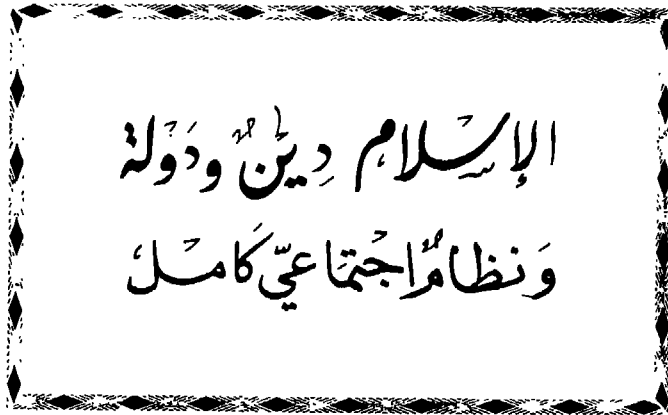 الإسلام دينٌ ودَولة
وَنظامٌ اجتماعيّ كَامل